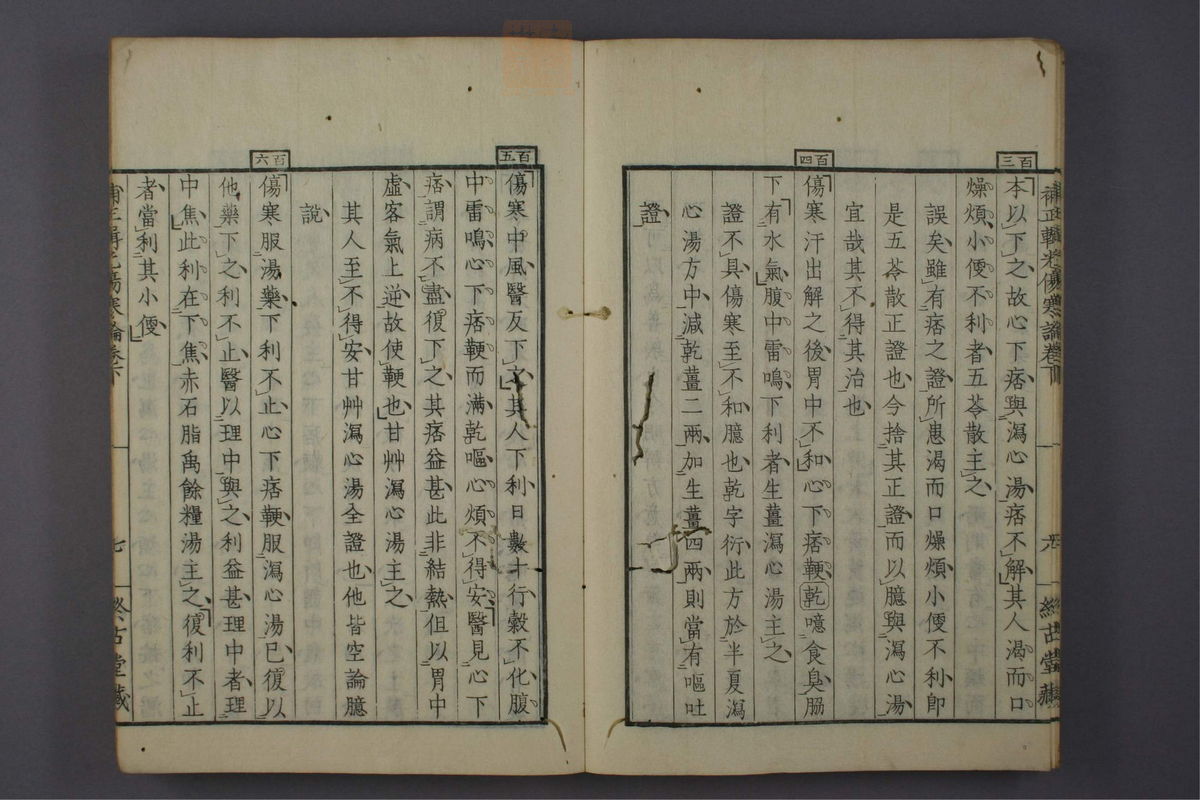 補正輯光傷寒論卷下
九
終古堂藏
百三
本以下之故心下痞與瀉心湯痞不解其人渴而口
燥煩小便不利者五苓散主之
誤矣雖有痞之證所患渴而口燥煩小便不利即
是五苓散正證也今捨其正證而以臆與瀉心湯
宜哉其不得其治也
百四
傷寒汗出解之後胃中不和心下痞鞕乾噫食臭脇
下有水氣腹中雷鳴下利者生薑瀉心湯主之
證不具傷寒至不和臆也乾字衍此方於半夏瀉
心湯方中減乾薑二兩加生薑四兩則當有嘔吐
證
百五
傷寒中風醫反下之其人下利日數十行穀不化腹
中雷鳴心下痞鞕而滿乾嘔心煩不得安醫見心下
痞謂病不盡復下之其痞益甚此非結熱但以胃中
虛客氣上逆故使鞕也甘艸瀉心湯主之
其人至不得安甘艸瀉心湯全證也他皆空論臆
說
百六
傷寒服湯藥下利不止心下痞鞕服瀉心湯已復以
他藥下之利不止醫以理中與之利益甚理中者理
中焦此利在下焦赤石脂禹餘糧湯主之復利不止
者當利其小便
七
終古堂藏